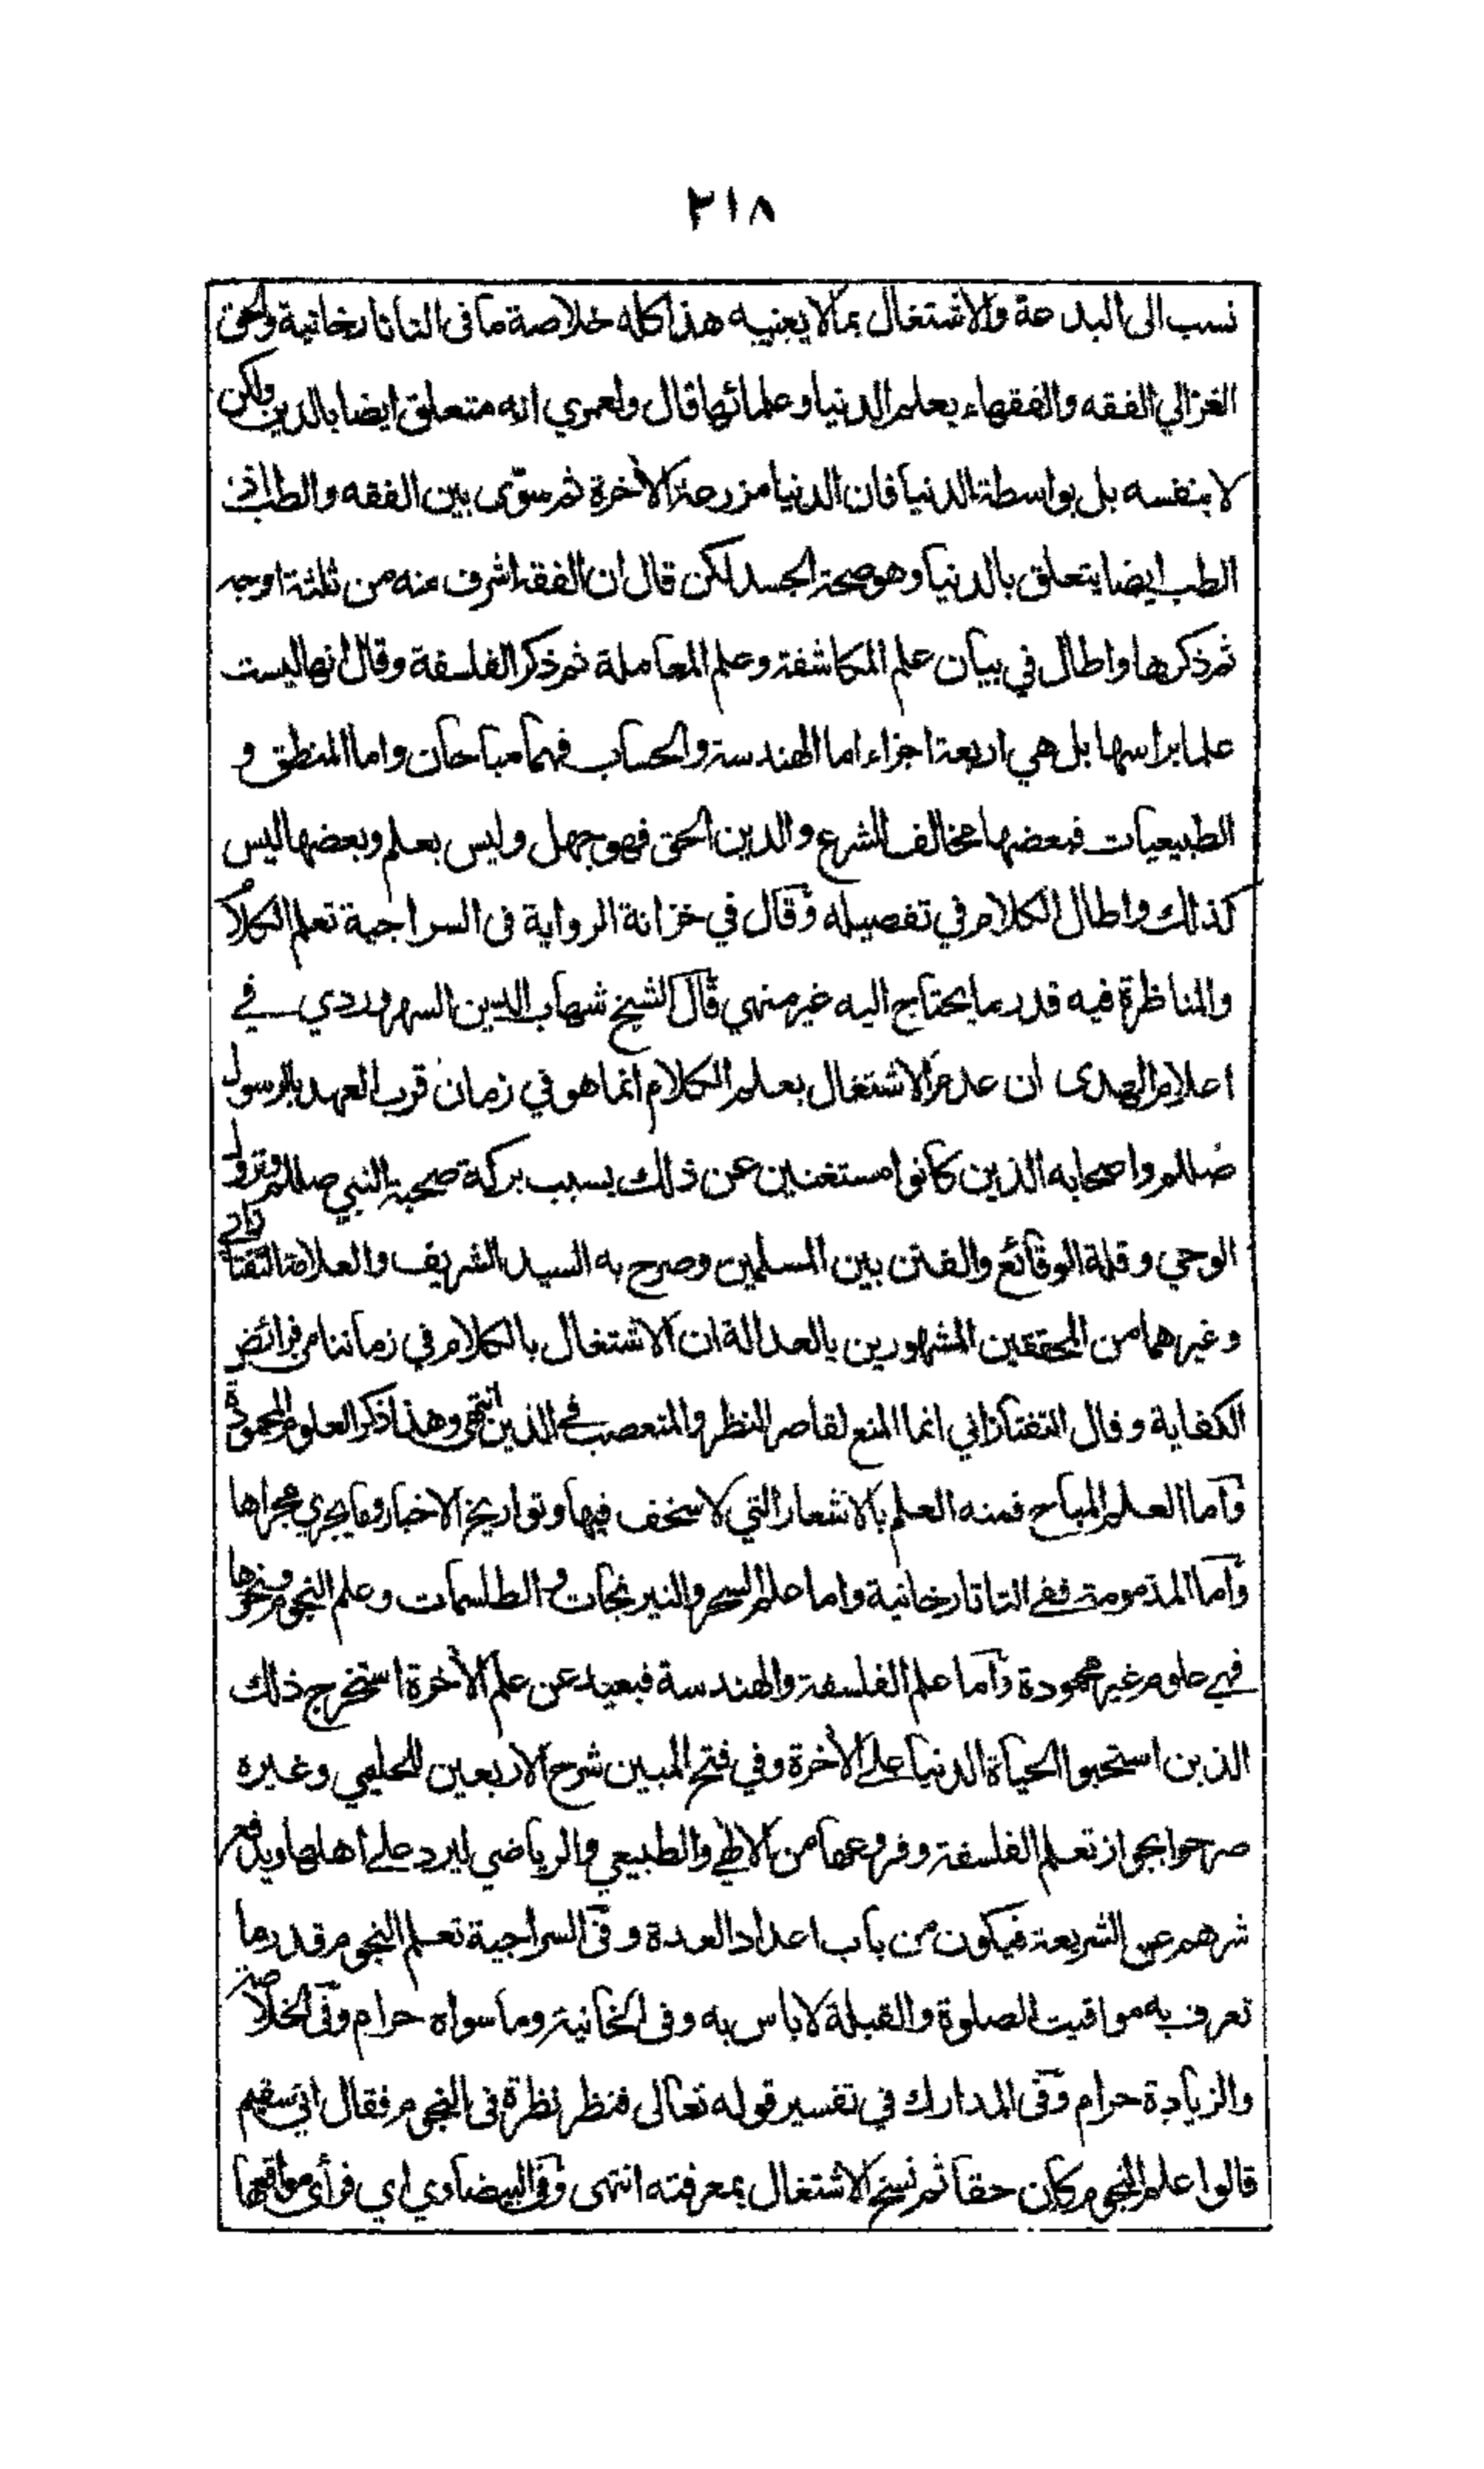 ٢١٨
نسب الى البدعة والاشتغال بما لا يعنيه هذا كله خلاصة ما فى التاتارخانية والحق
الغزالي الفقه والفقهاء بعلم الدنيا وعلمائها قال ولعمري انه متعلق ايضا بالدين ولكن
لا بنفسه بل بواسطة الدنيا فان الدنيا مزرعة الآخرة ثم سوّى بين الفقه والطب اذ
الطب ايضا يتعلق بالدنيا وهو صحة الجسد لكن قال ان الفقه اشرف منه من ثلثة اوجه
ثم ذكرها واطال في بيان علم المكاشفة وعلم المعاملة ثم ذكر الفلسفة وقال انها ليست
علما براسها بل هي اربعة اجزاء اما الهندسة والحساب فهما مباحان واما المنطق و
الطبيعيات فبعضها مخالف للشرع والدين الحق فهو جهل وليس بعلم وبعضها ليس
كذلك واطال الكلام في تفصيله وقال في خزانة الرواية فى السراجية تعلم الكلام
والمناظرة فيه قدر ما يحتاج اليه غير منهي قال الشيخ شهاب الدين السهروردي في
اعلام الهدى ان عدم الاشتغال بعلم الكلام انما هو في زمان قرب العهد بالرسول
صللم واصحابه الذين كانوا مستغنين عن ذلك بسبب بركة صحبة النبي صللم ونزول
الوحي وقلة الوقائع والفتن بين المسلمين وصرح به السيد الشريف والعلامة التفتازاني
وغيرهما من المحققين المشهورين بالعدالة ان الاشتغال بالكلام في زماننا من فرائض
الكفاية وقال التفتازاني انما المنع لقاصر النظر والمتعصب في الدين انتهى وهذا ذكر العلوم المحمودة
وأما العلم المباح فمنه العلم بالاشعار التي لا سخف فيها وتواريخ الاخبار وما يجري مجراها
وأما المذمومة ففي التاتارخانية واما علم السحر والنيرنجات والطلسمات وعلم النجوم ونحوها
فهي علوم غير محمودة وأما علم الفلسفة والهندسة فبعيد عن علم الآخرة استخرج ذلك
الذين استحبوا الحياة الدنيا على الآخرة وفي فتح المبين شرح الاربعين للحليمي وغيره
صرحوا بجواز تعلم الفلسفة وفروعها من الالهي والطبيعي والرياضي ليرد على اهلها ويدفع
شرهم عن الشريعة فيكون من باب اعداد العدة وفى السراجية تعلم النجوم قدر ما
تعرف به مواقيت الصلوة والقبلة لا باس به وفى الخانية وما سواه حرام وفى الخلاصة
والزيادة حرام وفى المدارك في تفسير قوله تعالى فنظر نظرة فى النجوم فقال اني سقيم
قالوا علم النجوم كان حقا ثم نسخ الاشتغال بمعرفته انتهى وفى البيضاوي اي فرأى مواقعها